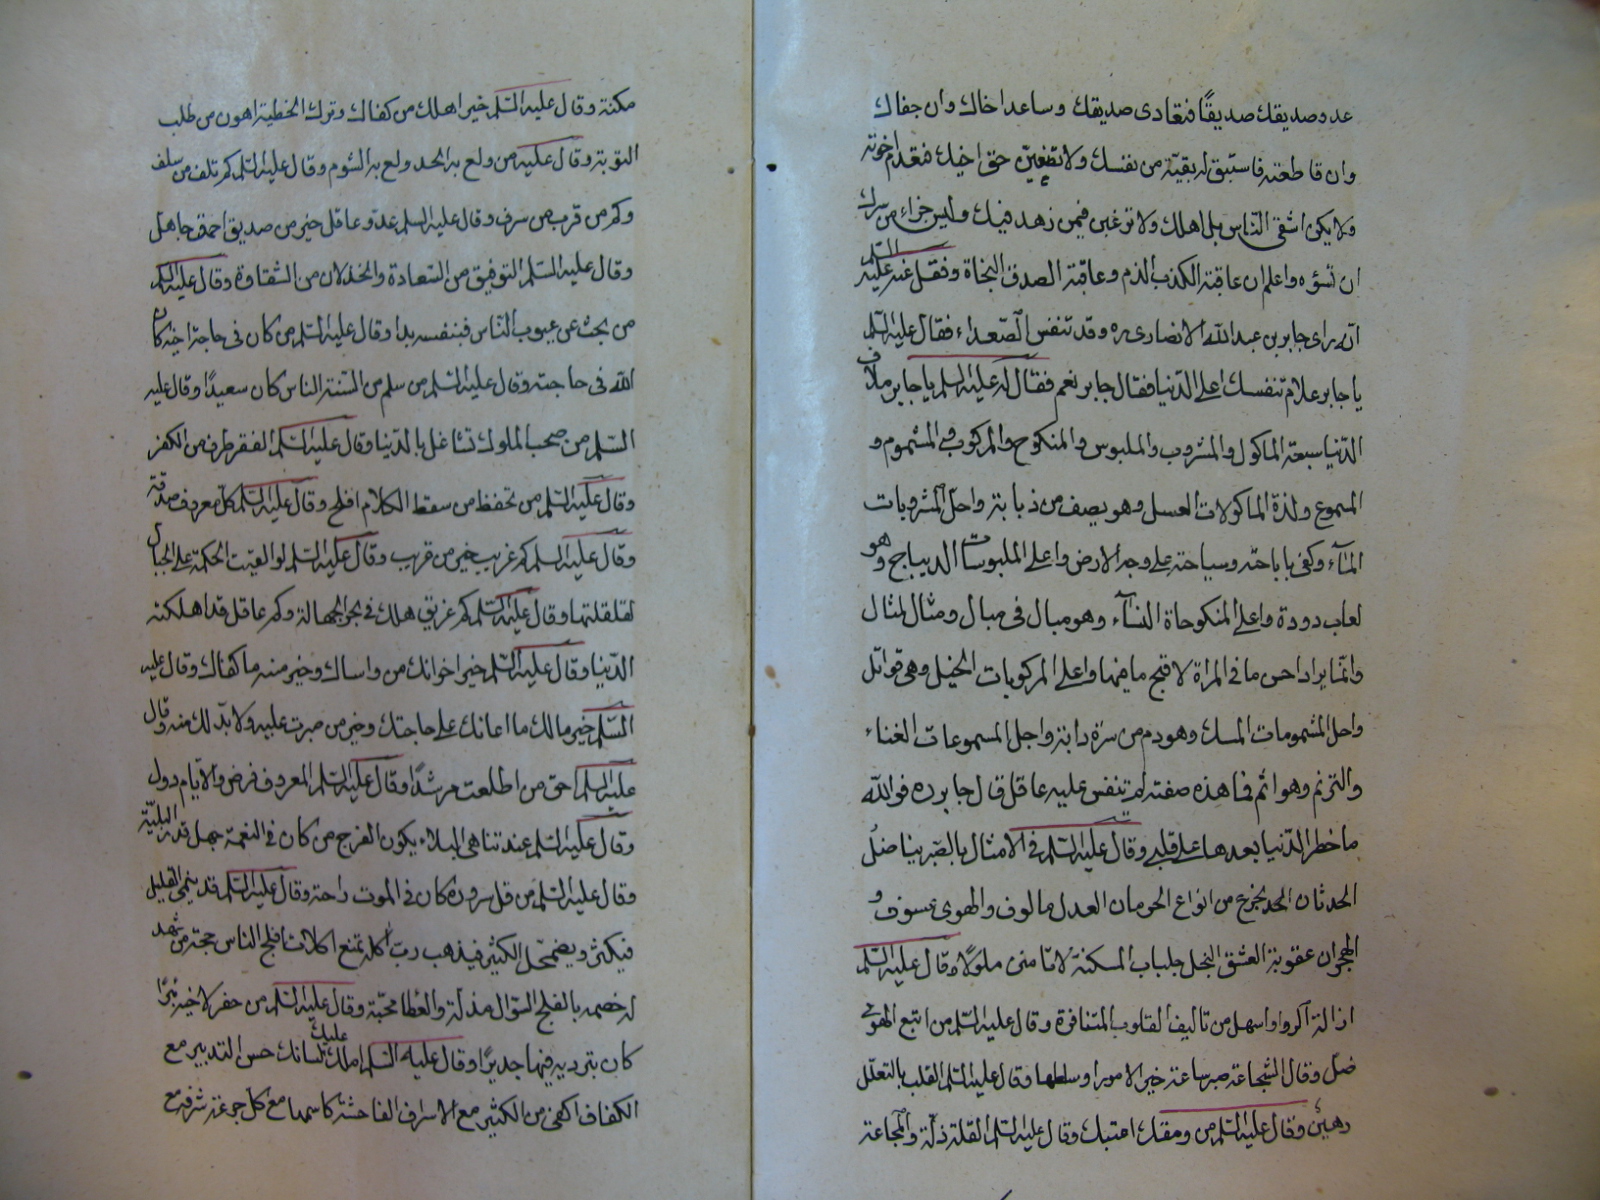 عدو صديقك صديقًا فتعادى صديقك وساعد اخاك وان جفاك
وان قاطعته فاستبق له بقية من نفسك ولا تضيعن حق اخيك فتعدم اخوته
ولا يكن اشقى الناس بك اهلك ولا ترغبن فيمن زهد فيك وليس جزاء من سرك
ان تسؤه واعلم ان عاقبة الكذب الذم وعاقبة الصدق النجاة وفقل عنه عليه السلم
انه راى جابر بن عبد الله الانصارى ره وقد تنفس الصعداء فقال عليه السلم
يا جابر علام تنفسك اعلى الدنيا فقال جابر نعم فقال له عليه السلم يا جابر ملاذ
الدنيا سبعة الماكول والمشروب والملبوس والمنكوح والمركوب والمشموم و
المسموع ولذة الماكولات العسل وهو بصف من ذبابة واحل المشروبات
المآء وكفى باباحته وسياحته على وجه الارض واعلى الملبوسات الديباج وهو
لعاب دودة واعلى المنكوحاة النسآء وهو مبال فى مبال ومثال لمثال
وانما يراد احسن ما فى المراة لاقبح ما فيها واعلى المركوبات الخيل وهى قواتل
واحل المشمومات المسك وهو دم من سرة دابة واجل المسموعات الغناء
والترنم وهو اثم فما هذه صفته لم تنفس عليه عاقل قال جابر ره فوالله
ما خطر الدنيا بعدها على قلبى وقال عليه السلم فى الامثال بالصبر يناضل
الحدثان الجزع من انواع الحرمان العدل مالوف والهوى عسوف و
الهجران عقوبة العشق البخل جلباب المسكنة لا تامنن ملولا وقال عليه السلم
ازالة الرواسى اسهل من تاليف القلوب المتنافرة وقال عليه السلم من اتبع الهوى
ضل وقال الشجاعة صبر ساعة خير الامور اوسطها وقال عليه السلم القلب بالتعلل
رهين وقال عليه السلم من ومقك اعتبك وقال عليه السلم القلة ذلة والمجاعة
مكنة وقال عليه السلم خير اهلك من كفاك وترك الخطية اهون من طلب
التوبة وقال عليه من ولع به الحسد ولع به الشوم وقال عليه السلم كم تلف من سلف
وكم من قرب من سرف وقال عليه السلم عدو عاقل خير من صديق احمق جاهل
وقال عليه السلم التوفيق من السعادة والخذلان من الشقاوة وقال عليه السلم
من بحث عن عيوب الناس فبنفسه بدا وقال عليه السلم من كان فى حاجة اخيه كان
الله فى حاجته وقال عليه السلم من سلم من السنة الناس كان سعيدًا وقال عليه
السلم من صحب الملوك تشاغل بالدنيا وقال عليه السلم الفقر طرف من الكفر
وقال عليه السلم من تحفظ من سقط الكلام افلح وقال عليه السلم كل معروف صدقة
وقال عليه السلم كم غريب خير من قريب وقال عليه السلم لو القيت الحكمة على الجبال
لقلقلتها وقال عليه السلم كم غريق هلك فى بحر الجهالة وكم عاقل قد اهلكته
الدنيا وقال عليه السلم خير اخوانك من واساك وخير منه ما كفاك وقال عليه
السلم خير مالك ما اعانك على حاجتك وخير من صبرت عليه ولا بد لك منه وقال
عليه السلم احق من اطلعت مرشدًا وقال عليه السلم المعروف فرض والايام دول
وقال عليه السلم عند تناهى البلاء يكون الفرج من كان فى النعمة جهل قدر البلية
وقال عليه السلم من قل سروره كان فى الموت راحة وقال عليه السلم قد ينمى القليل
فيكثر ويضمحل الكثير فيذهب رب اكلة تمنع اكلات افلج الناس حجة من شهد
له خصمه بالفلج السؤال مذلة والعطا محبة وقال عليه السلم من حفر لاخيه بئرًا
كان بترديه فيها جديرًا وقال عليه السلم املك عليك لسانك حسن التدبير مع
الكفاف اكفى من الكثير مع الاسراف الفاحشة كاسمها مع كل جرعة شرقة مع